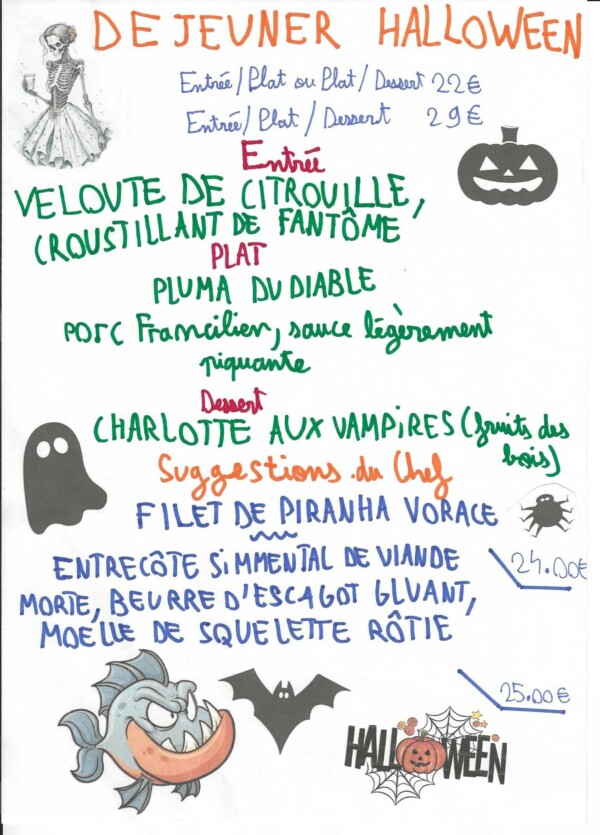 DEJEUNER HALLOWEEN
Entrée/Plat ou Plat/Dessert 22€
Entrée/Plat/Dessert 29€
Entrée
VELOUTE DE CITROUILLE,
CROUSTILLANT DE FANTÔME
PLAT
PLUMA DU DIABLE
porc Francilien, sauce légèrement
piquante
Dessert
CHARLOTTE AUX VAMPIRES (fruits des
bois)
Suggestions du Chef
FILET DE PIRANHA VORACE
24.00€
ENTRECÔTE SIMMENTAL DE VIANDE
MORTE, BEURRE D'ESCAGOT GLUANT,
MOELLE DE SQUELETTE RÔTIE
25.00€
HALLOWEEN